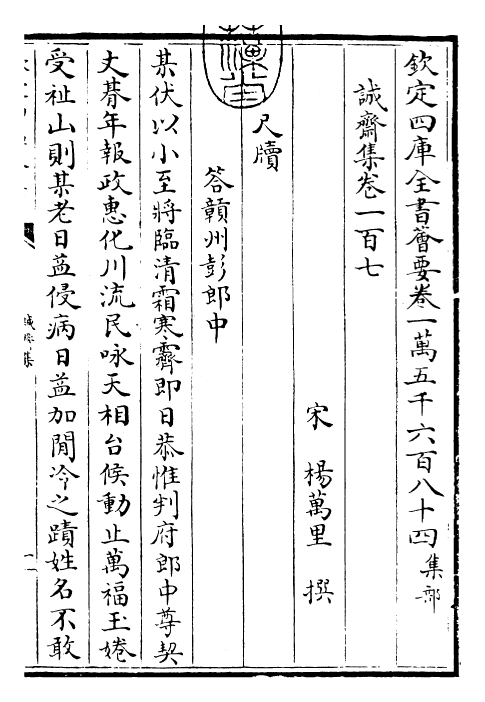 欽定四庫全書薈要卷一萬五千六百八十四集部
誠齋集卷一百七
宋 楊萬里 撰
尺牘
答贛州彭郎中
某伏以小至將臨清霜寒霽即日恭惟判府郎中尊契
丈朞年報政惠化川流民咏天相台候動止萬福玉婘
受祉山則某老日益侵病日益加閒冷之蹟姓名不敢
誠齋集